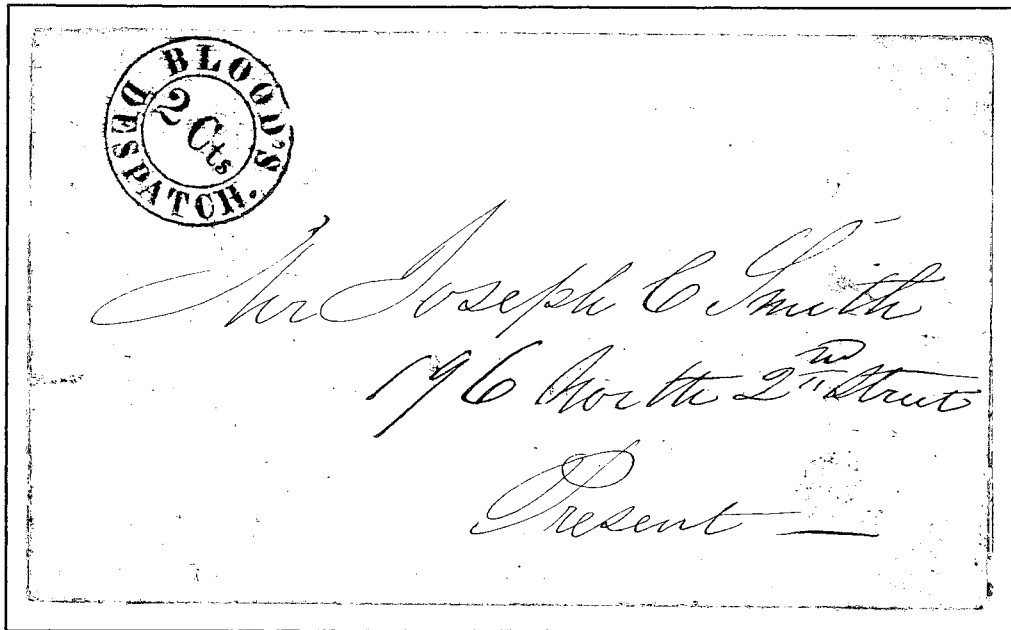 BLOOD'S
DESPATCH.
2 Cts
Mr Joseph C Smith
196 North 2nd Street
Present